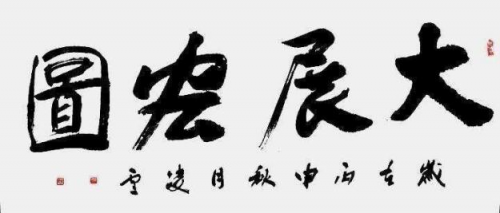 大展宏圖
歲在丙申秋月凌